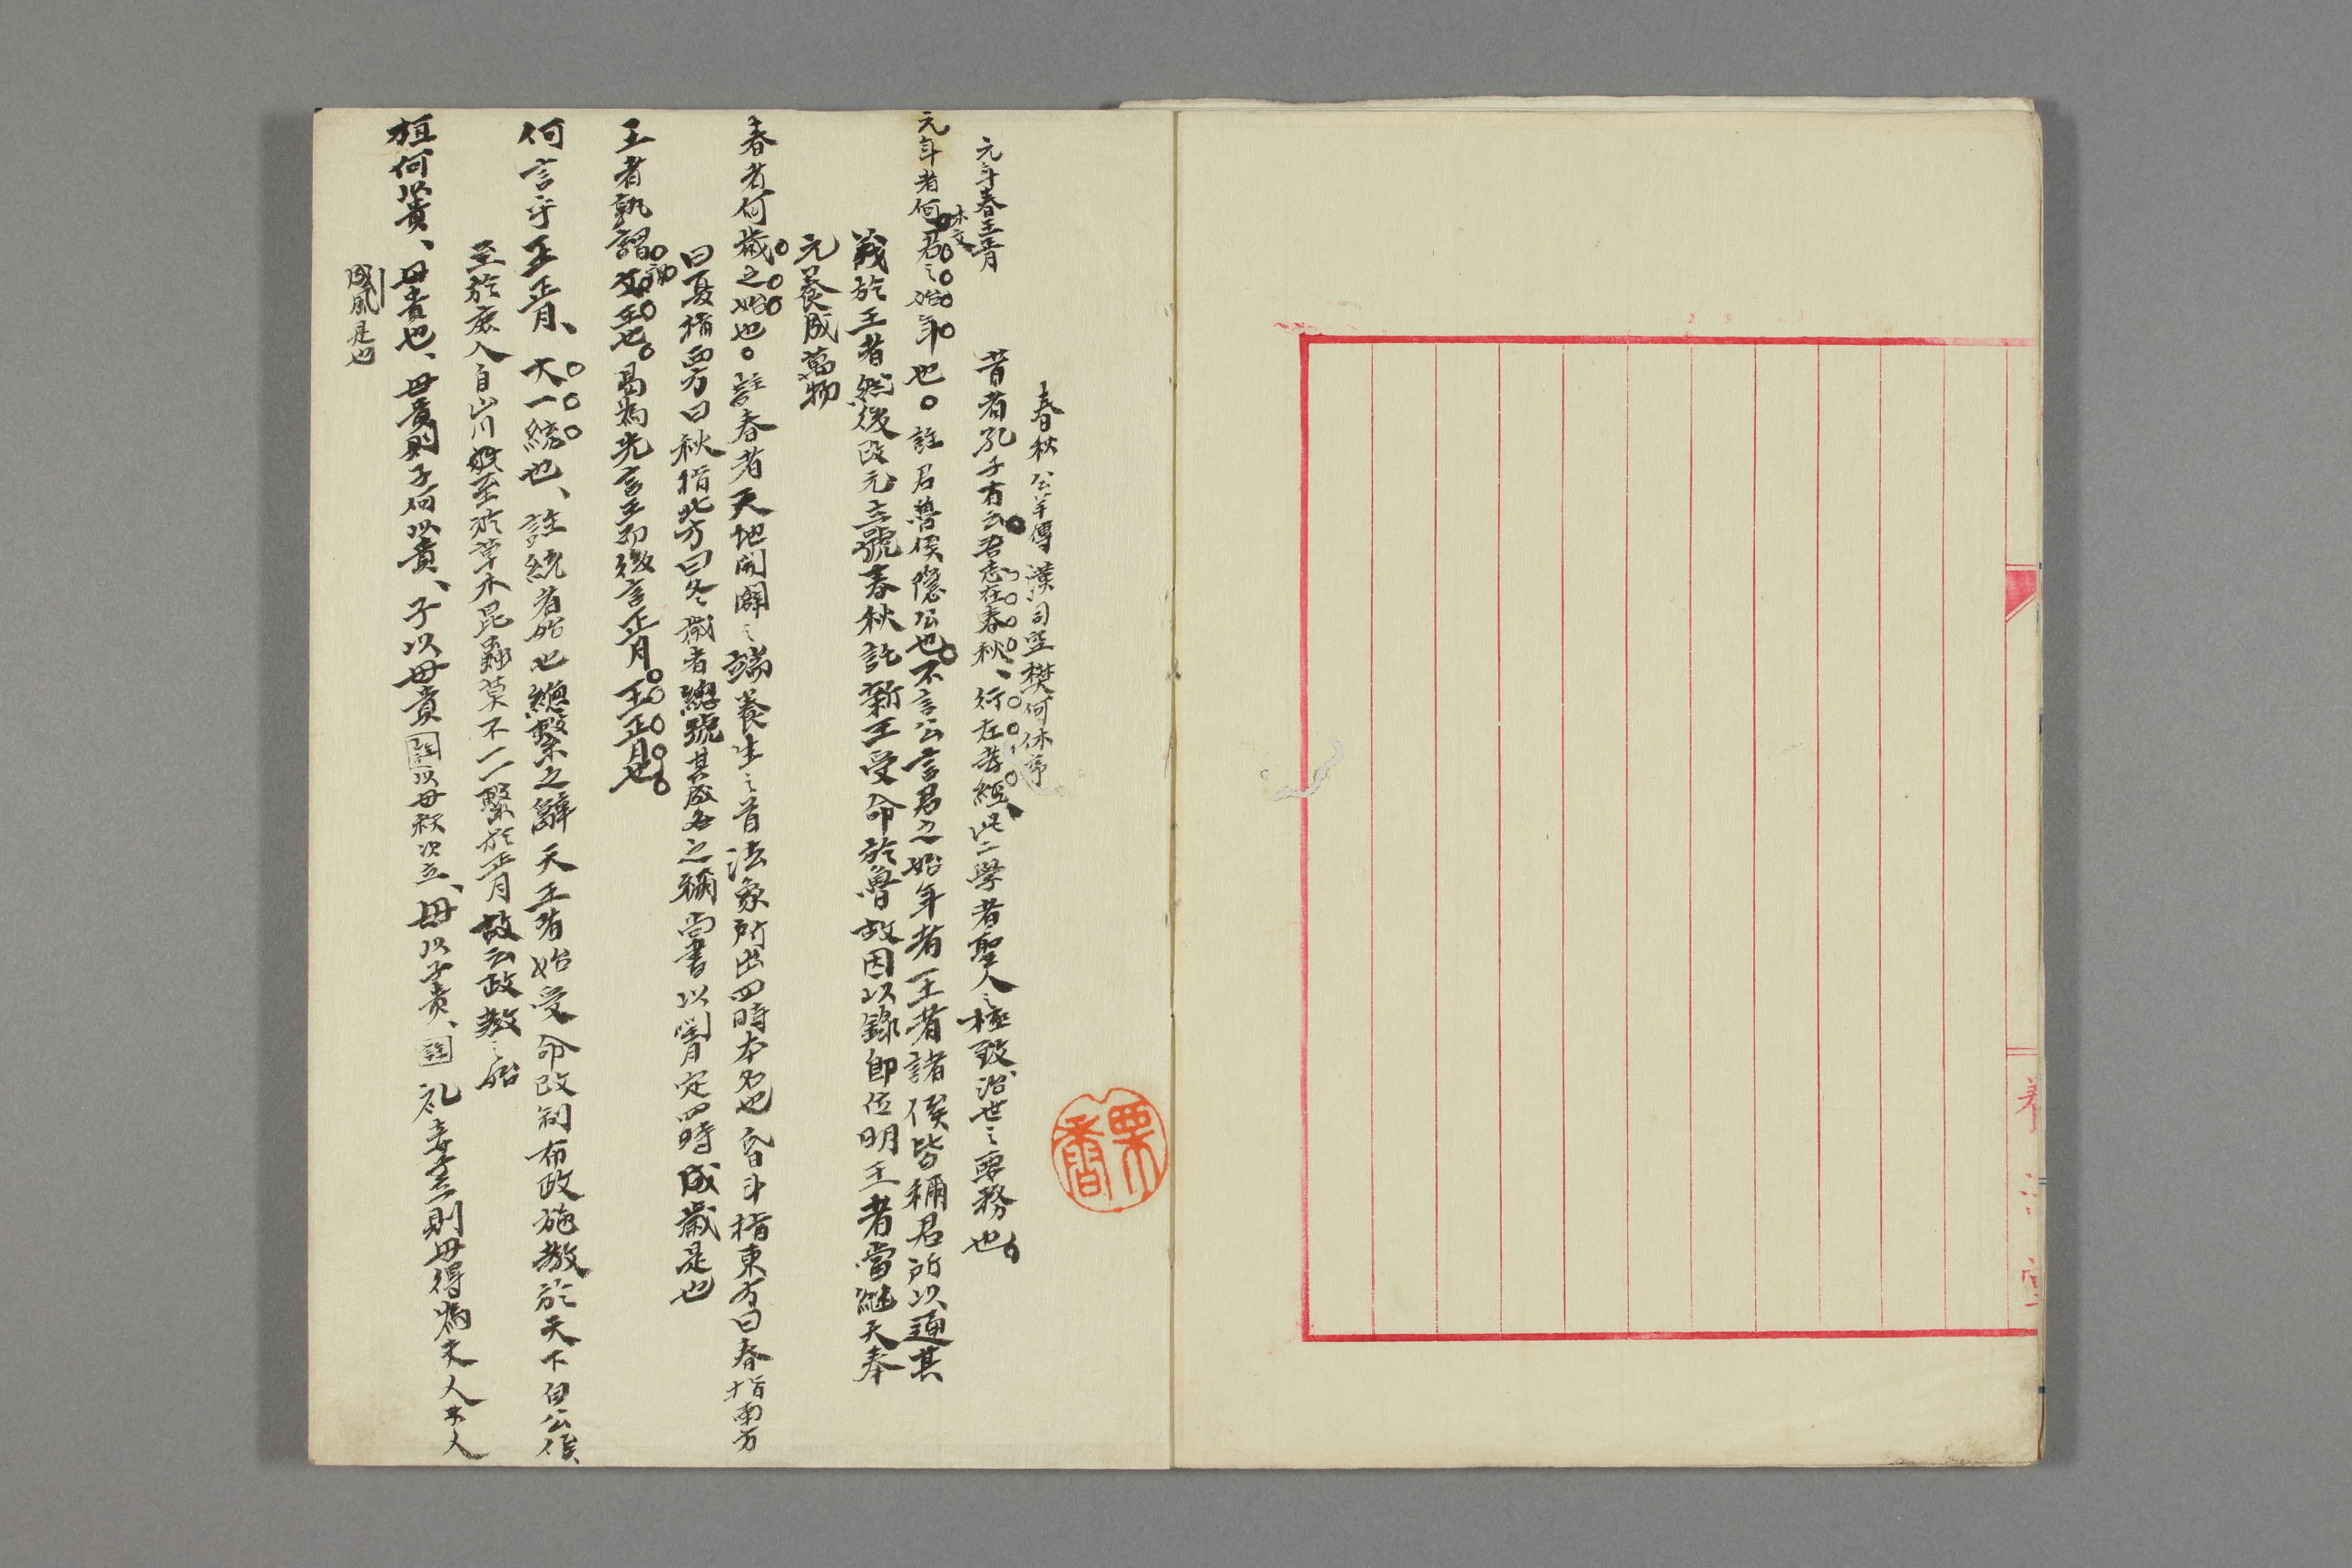 春秋公羊傳 漢司空樊何休序
昔者孔子有云吾志在春秋、行在孝經、此二學者聖人之極致治世之要務也。
元年春王正月
元年者何君之始年也。註君魯侯隱公也不言公言君之始年者王者諸侯皆稱君所以通其
義於王者然後改元立號春秋託新王受命於魯故因以錄即位明王者當継天奉
元養成萬物
春者何歲之始也。註春者天地開闢之端養生之首法象所出四時本名也昏斗指東方曰春指南方
曰夏指西方曰秋指北方曰冬歲者總號其成名之稱尚書以閏月定四時成歲是也
王者孰謂謂文王也。曷為先言王而後言正月王正月也
何言乎王正月、大一統也、註統者始也總繫之辭天王者始受命改制布政施教於天下自公侯
至於庶人自山川至於草木昆蟲莫不一一繫於正月故云政教之始
桓何以貴、母貴也、母貴則子何以貴、子以母貴註以母秩次立、母以子貴、註礼妾子立則母得為夫人夫人
成風是也
栗香